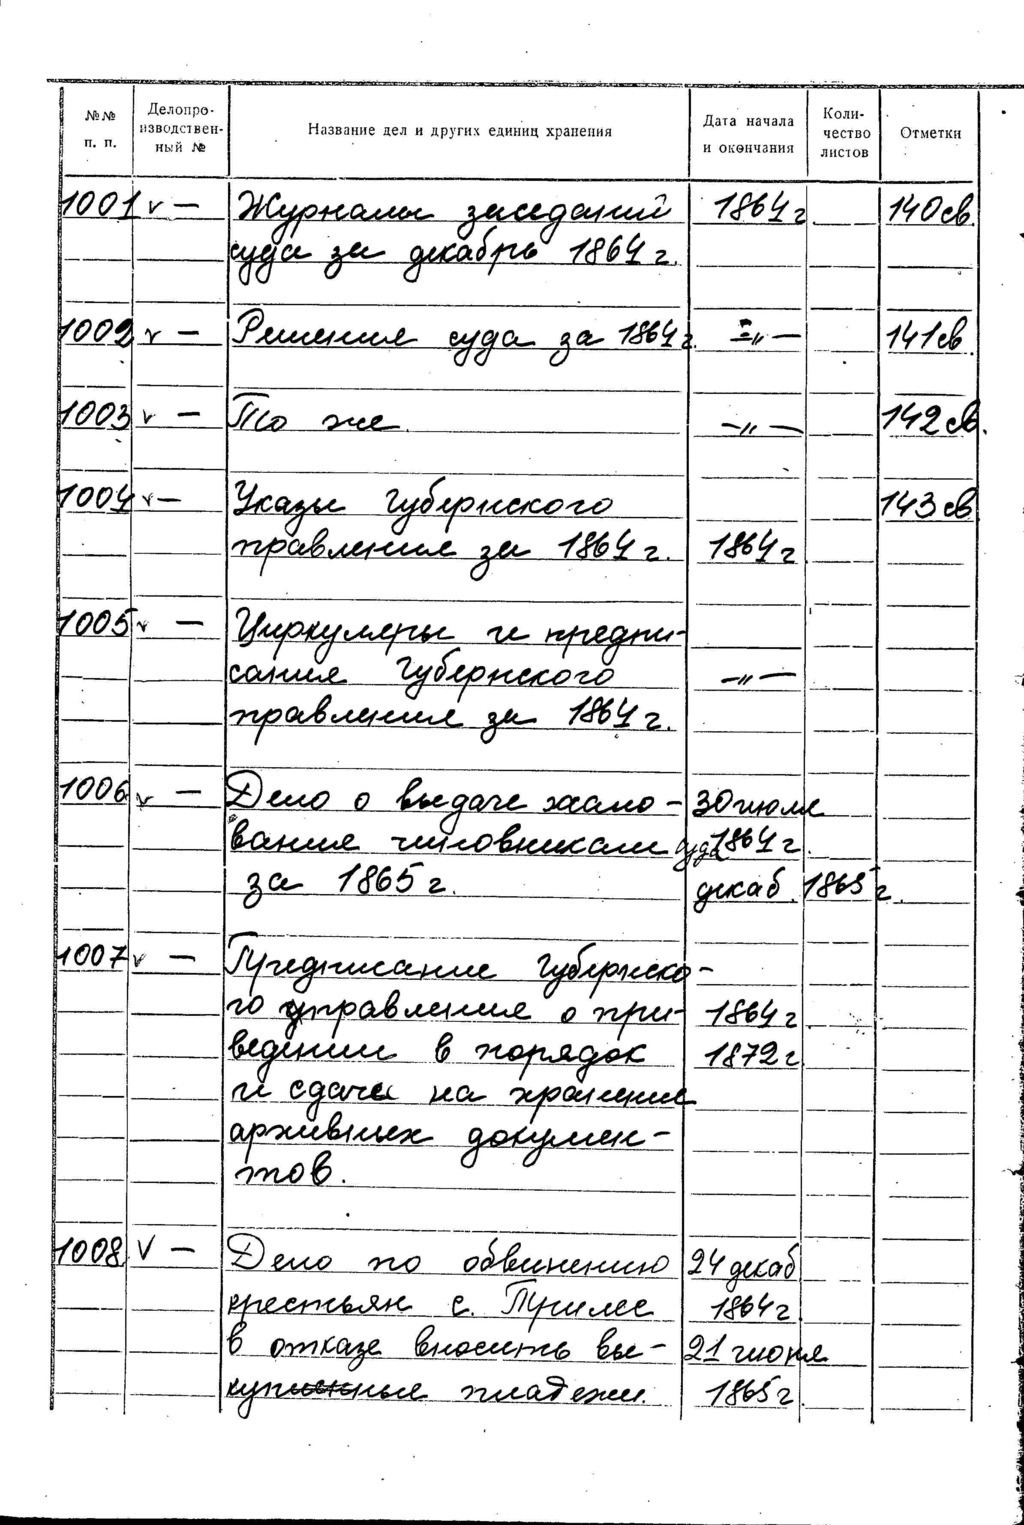 №№ п. п. Делопроизводственный № Название дел и других единиц хранения Дата начала и окончания Количество листов Отметки
1001 v — Журналы заседаний 1864 г 140 св.
суда за декабрь 1864 г.
1002 v — Решения суда за 1864 г. —"— 141 св.
1003 v — То же. —"— 142 св.
1004 v — Указы Губернского 143 св
правления за 1864 г. 1864 г
1005 v — Циркуляры и предпи-
сания Губернского —"—
правления за 1864 г.
1006 v — Дело о выдаче жало- 30 июля
вания чиновникам суда 1864 г.
за 1865 г. декаб. 1865 г.
1007 v — Предписание Губернско-
го управления о при- 1864 г
ведении в порядок 1872 г
и сдаче на хранение
архивных докумен-
тов.
1008 v — Дело по обвинению 24 декаб
крестьян с. Трилес 1864 г.
в отказе вносить вы- 21 июня
купные платежи. 1865 г.